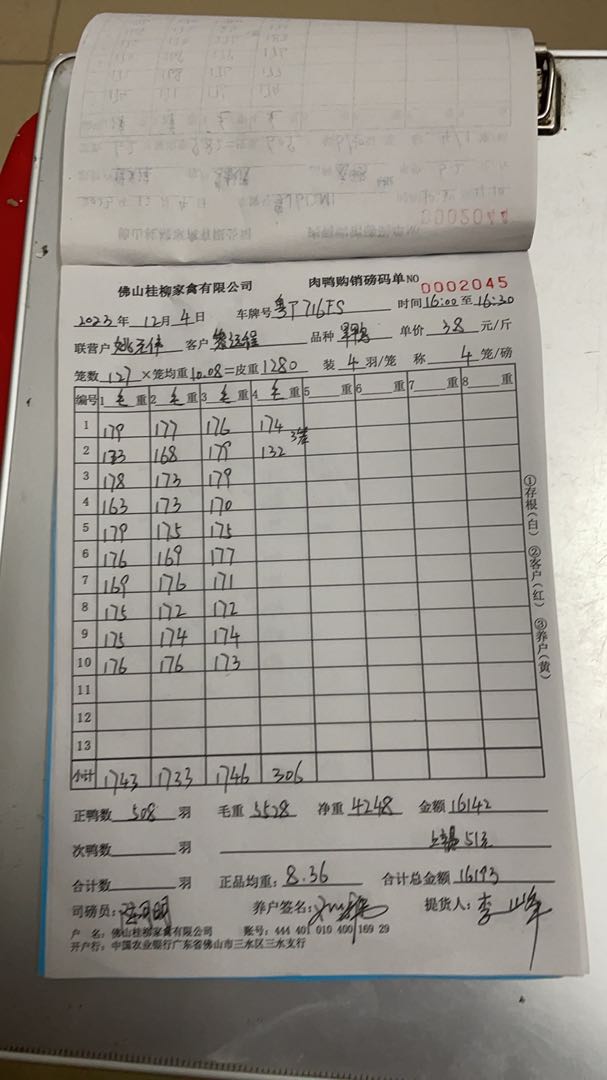 0002044
佛山桂柳家禽有限公司 肉鸭购销磅码单 NO 0002045
2023年 12月 4日 车牌号 粤T716FS 时间 16:00 至 16:30
联营户 客户 品种 单价 3.8 元/斤
笼数 127 ×笼均重 10.08 =皮重 1280 装 4 羽/笼 称 4 笼/磅
编号 1 毛 重 2 毛 重 3 毛 重 4 毛 重 5 重 6 重 7 重 8 重
1 179 177 176 174
2 168 179 132 3笼
3 178 173 179
4 163 173 170
5 179 175 175
6 176 169 177
7 169 176 171
8 175 172 172
9 175 174 174
10 176 176 173
11
12
13
小计 1743 1733 1746 306
正鸭数 508 羽 毛重 5528 净重 4248 金额 16142
次鸭数 羽 51元
合计数 羽 正品均重: 8.36 合计总金额 16193
司磅员: 养户签名: 提货人: 李
户 名: 佛山桂柳家禽有限公司 账号: 444 401 010 400 169 29
开户行: 中国农业银行广东省佛山市三水区三水支行
①存根(白) ②客户(红) ③养户(黄)